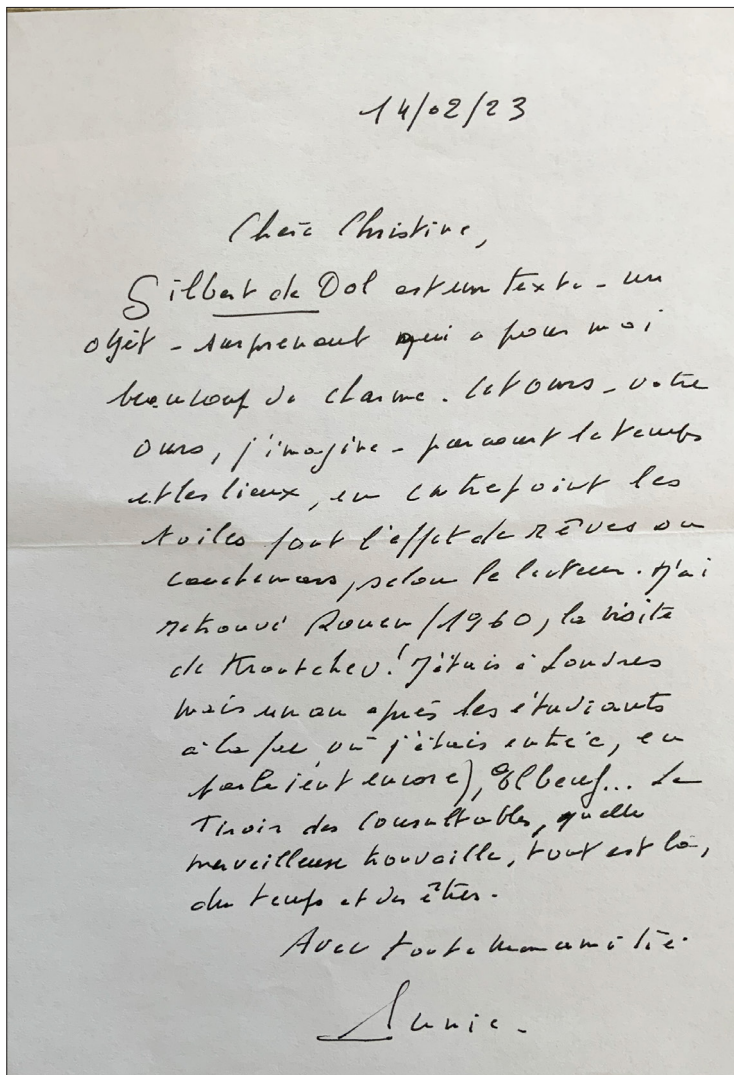 14/02/23
Chère Christine,
Gilbert de Dol est un texte - un
objet - surprenant qui a pour moi
beaucoup de charme. Cet ours - votre
ours, j'imagine - parcourt le temps
et les lieux, en contrepoint les
toiles font l'effet de rêves ou
cauchemars, selon le lecteur. J'ai
retrouvé Rouen (1960, la visite
de Kroutchev! J'étais à Londres
mais un an après les étudiants
à la fac, où j'étais entrée, en
parlaient encore), Elbeuf... Le
Tiroir des Consultables, quelle
merveilleuse trouvaille, tout est là,
du temps et des êtres.
Avec toute mon amitié.
Annie.